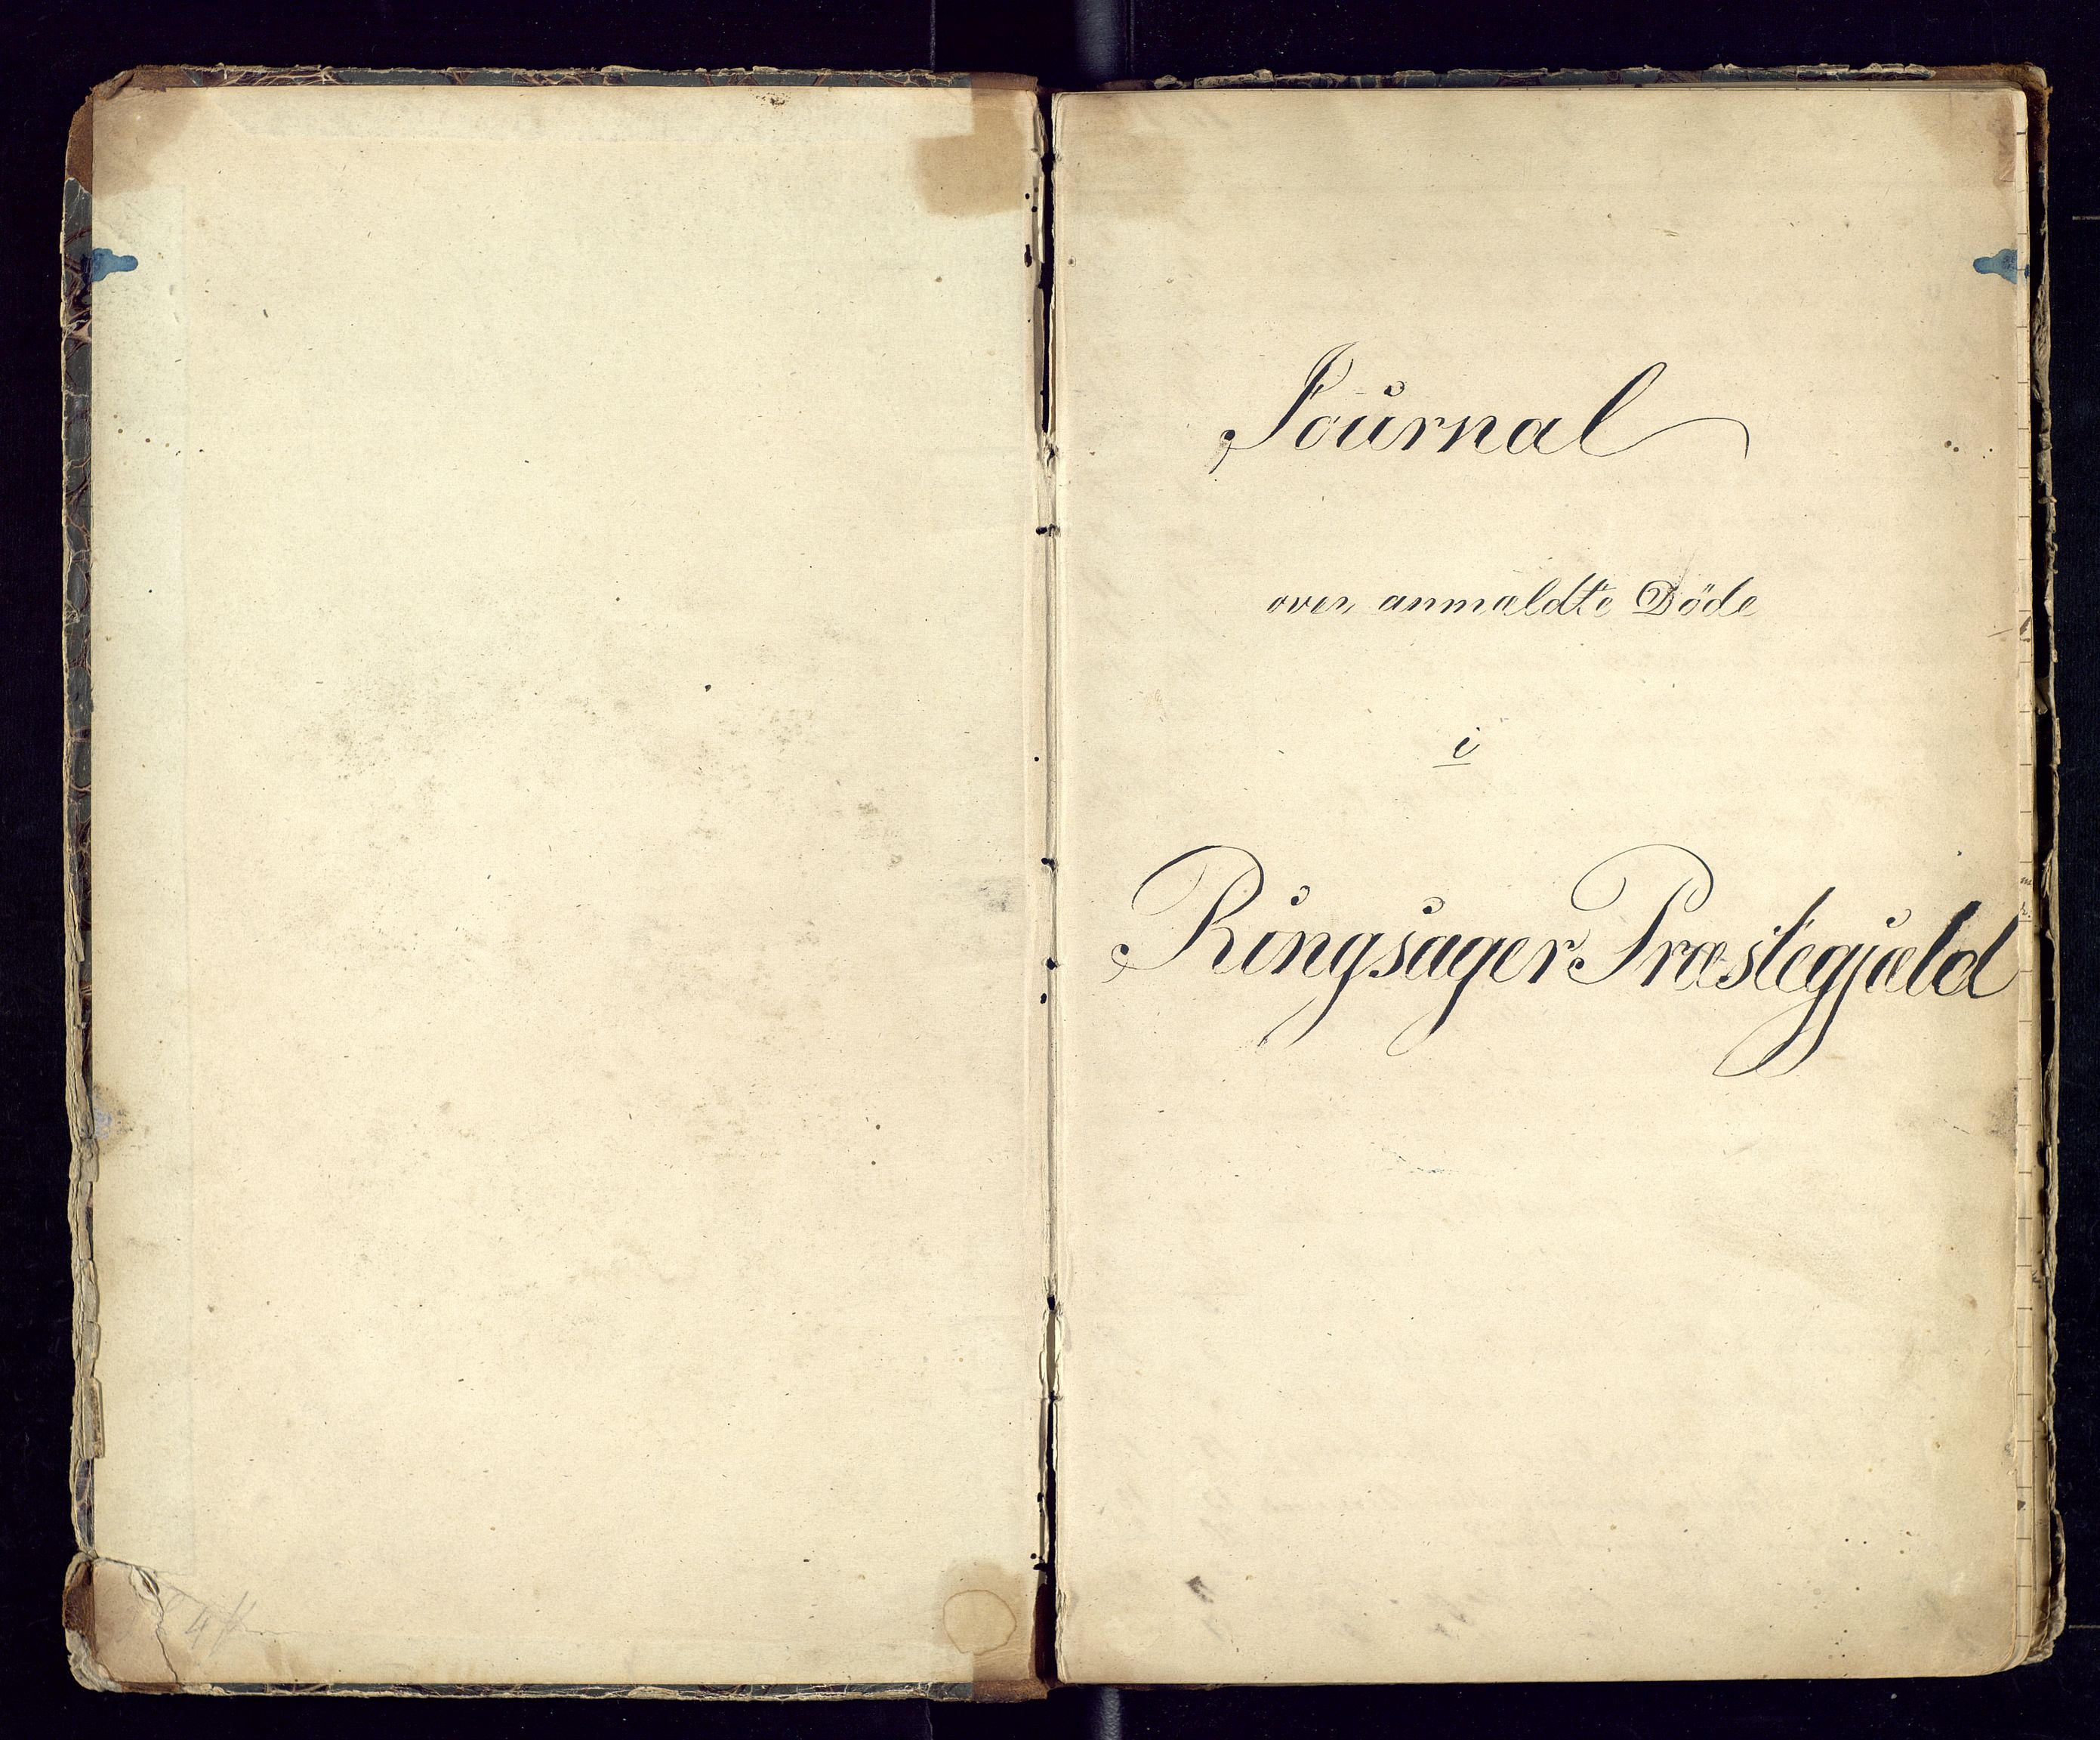 Journal
over anmældte Döde
i
Ringsager Præstegjæld